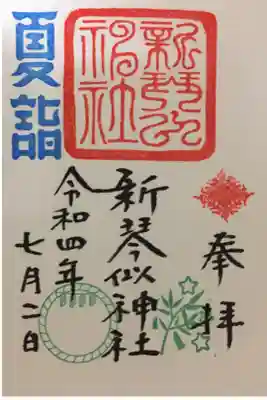 奉拝
新琴似神社
令和四年
七月二日
夏詣
新琴似
神社